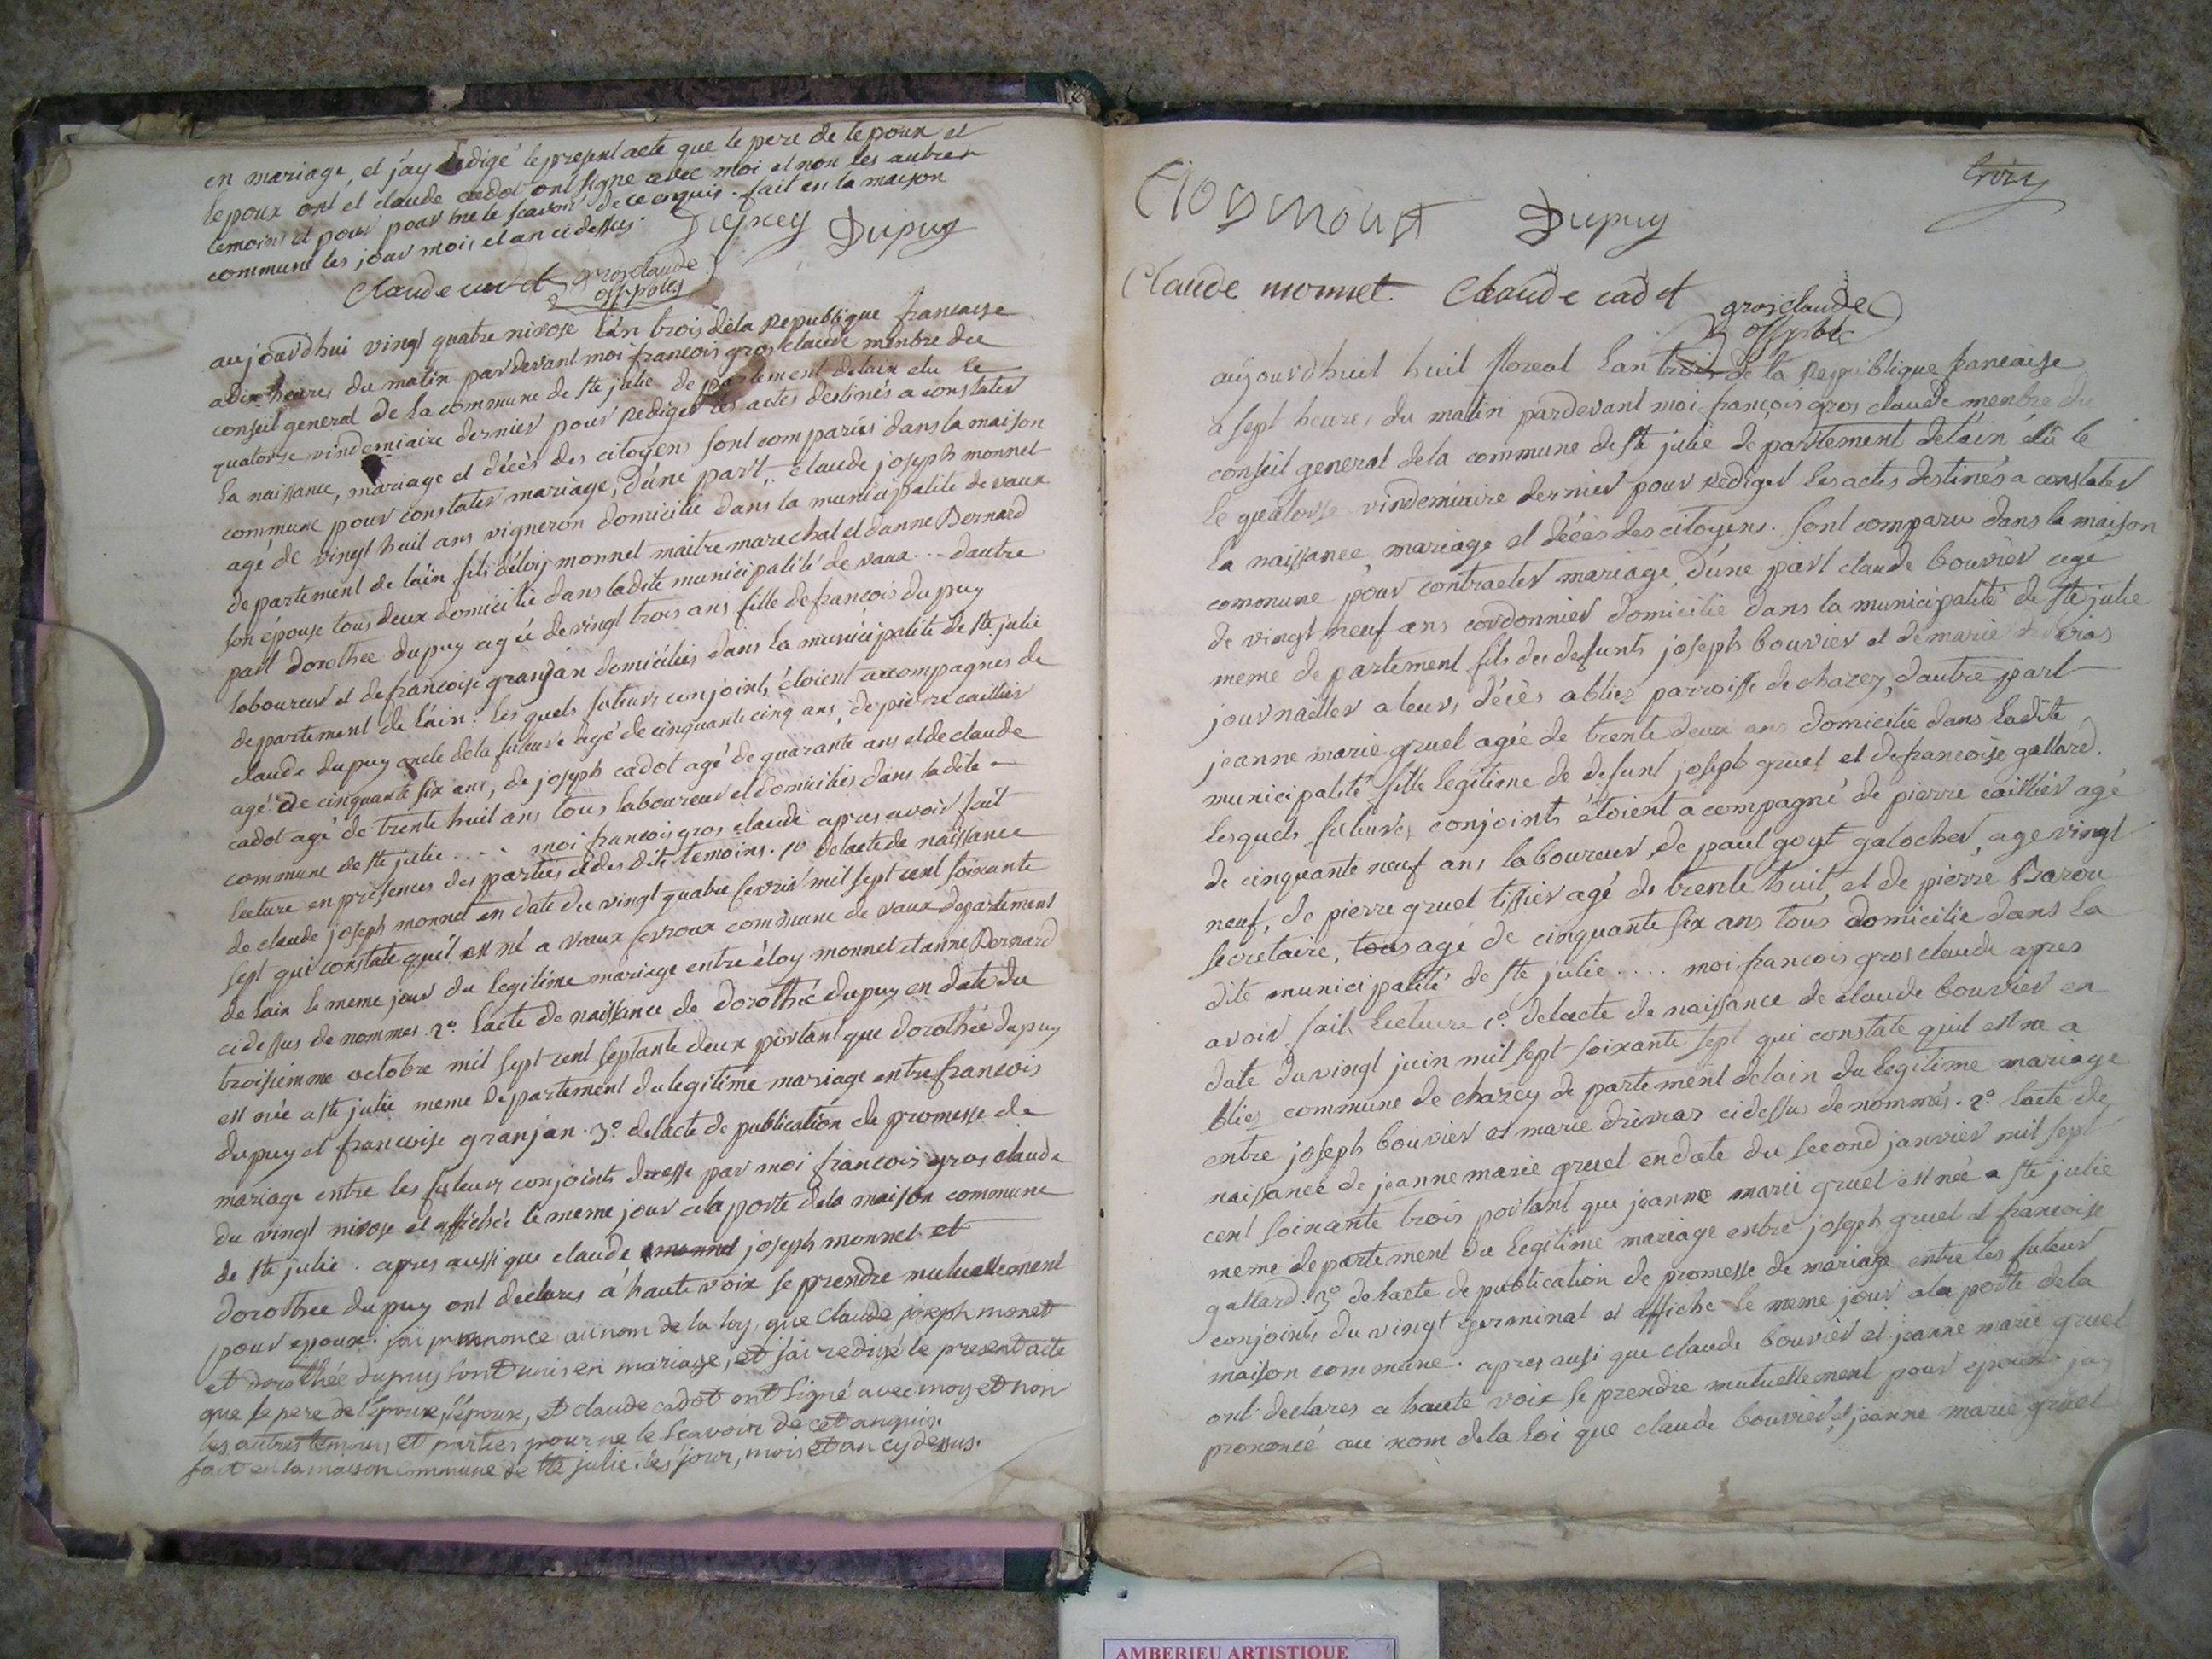 en mariage, et j'ay redigé le present acte que le pere de lepoux et
lepoux ont et claude cadot ont signe avec moi et non les autres
temoins et pour ne le scavoir de ce enquis. fait en la maison
commune les jour mois et an ci dessus
Dupuy
claude cadot grosclaude
off. public
aujourdhui vingt quatre nivose l'an trois de la Republique francaise
a dix heures du matin pardevant moi francois gros claude menbre du
conseil general de la commune de ste julie departement delain elu le
quatorze vindemiaire dernier pour rediger les actes destinés a constater
la naissance, mariage et décès des citoyens sont comparus dans la maison
commune pour constater mariage, d'une part, claude joseph monnet
agé de vingt huit ans vigneron domicilie dans la municipalite de vaux
departement de lain fils déloy monnet maitre marechal et danne Bernard
son épouse tous deux domicilié dans ladite municipalité de vaux ... dautre
part dorothee dupuy agée de vingt trois ans fille de francois dupuy
laboureur et de francoise granjan domiciliés dans la municipalite de ste julie
departement de l'ain. les quels futeurs conjoints étoient accompagnes de
claude dupuy oncle de la future agé de cinquante cinq ans, de pierre caillier
agé de cinquante six ans, de joseph cadot agé de quarante ans et de claude
cadot agé de trente huit ans tous laboureur et domicilies dans ladite
commune de ste julie .... moi francois gros claude apres avoir fait
lecture en presences des parties et des dits temoins. 1º delacte de naissance
de claude joseph monnet en date du vingt quatre fevrier mil sept cent soixante
sept qui constate qu'il est né a vaux fevroux commune de vaux departement
de lain le meme jour du legitime mariage entre éloy monnet et anne Bernard
ci dessus de nommes. 2º. lacte de naissance de dorothée dupuy en date du
troisiemme octobre mil sept cent septante deux portant que dorothée dupuy
est née a ste julie meme departement du legitime mariage entre francois
dupuy et francoise granjan. 3º. delacte de publication de promesse de
mariage entre les futeurs conjoints dresse par moi francois gros claude
du vingt nivose et affichée le meme jour a la porte dela maison commune
de ste julie. apres aussi que claude monnet joseph monnet et
dorothee dupuy ont declares á haute voix se prendre mutuellement
pour epoux. j'ai prononce au nom de la loy, que claude joseph monet
et dorothée dupuy sont unis en mariage, et j'ai redigé le present acte
que le pere de l'époux, l'époux, et claude cadot ont signé avec moy et non
les autres temoins, et parties pour ne le scavoir de cet anquis.
fait en la maison commune de ste julie. les jour, mois et an cy dessus.
Dupuy
Claude monnet. Claude cadot
grosclaude
off. public
aujourdhuit huit floreal lan trois de la Republique francaise
a sept heures du matin pardevant moi françois gros claude menbre du
conseil general dela commune de ste julie departement delain élu le
le quatorse vindemiaire dernier pour rediger les actes destinés a constater
la naissance, mariage et décès des citoyens. sont comparu dans la maison
commune pour contracter mariage, d'une part claude bouvier age
de vingt neuf ans cordonnier domicilie dans la municipalité de ste julie
meme departement fils du defunts joseph bouvier et de marie
journailler a leurs décès a blies parroisse de chazey, dautre part
jeanne marie gruel agée de trente deux ans domicilie dans ladite
municipalité fille legitime de defunt joseph gruel et defrancoise gallard.
lesquels futeurs conjoints étoient acompagné de pierre caillier agé
de cinquante neuf ans laboureur, de paul goyt galocher, age vingt
neuf, de pierre gruel tissier agé de trente huit et de pierre Barou
secretaire, tous agé de cinquante six ans tous domicilie dans la
dite municipalité de ste julie .... moi francois gros claude apres
avoir fait lecture 1º. delacte de naissance de claude bouvier en
date du vingt juin mil sept soixante sept qui constate quil est ne a
blies commune de chazey departement delain du legitime mariage
entre joseph bouvier et marie drevras ci dessus de nommés. 2º. lacte de
naissance de jeanne marie gruel endate du second janvier mil sept
cent soixante trois portant que jeanne marie gruel est née a ste julie
meme departement du legitime mariage entre joseph gruel et francoise
gallard. 3º. de lacte de publication de promesse de mariage entre les futeur
conjoints du vingt germinal et affiche le meme jour a la porte dela
maison commune. apres ausi que claude bouvier et jeanne marie gruel
ont declares a haute voix se prendre mutuellement pour epoux jay
prononcé au nom dela loi que claude bouvier et jeanne marie gruel
AMBERIEU ARTISTIQUE